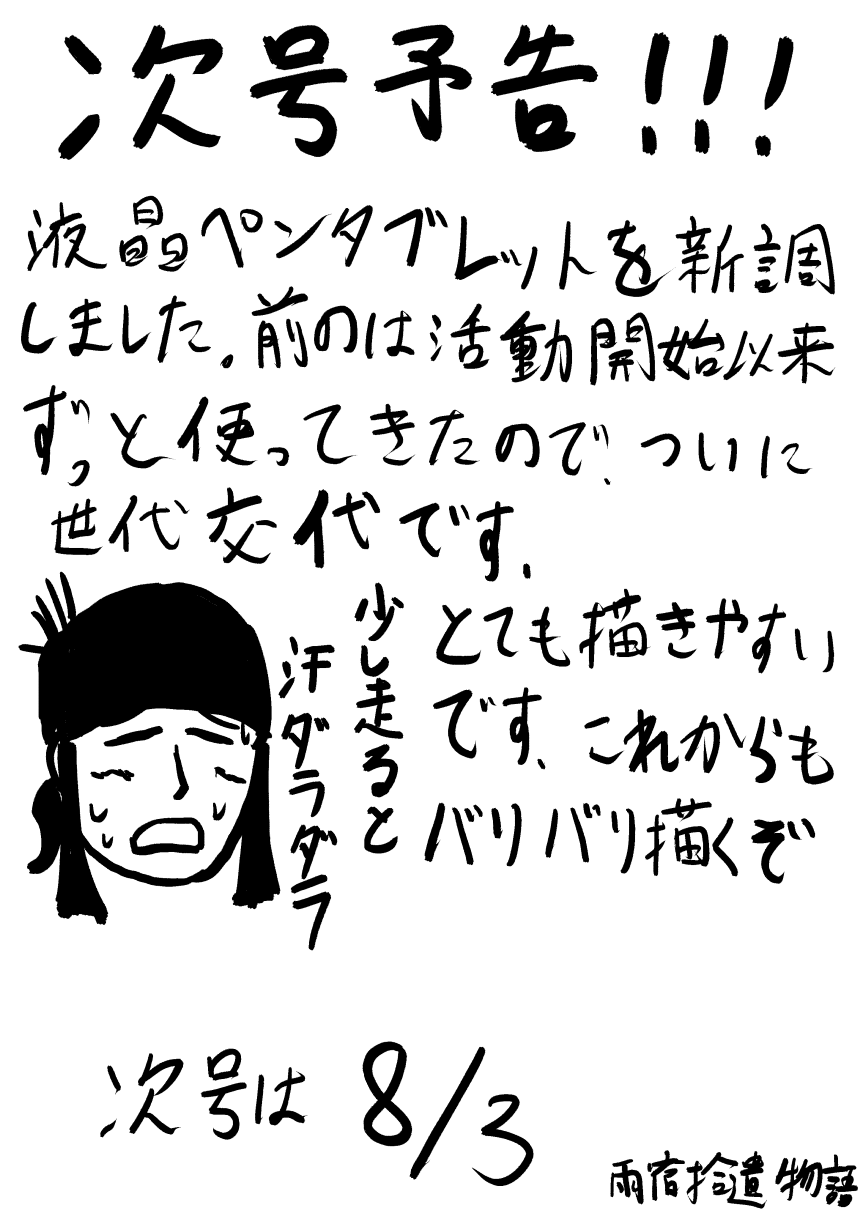 次号予告!!!
液晶ペンタブレットを新調
しました。前のは活動開始以来
ずっと使ってきたので、ついに
世代交代です、
とても描きやすい
です、これからも
バリバリ描くぞ
少し走ると
汗ダラダラ
次号は 8/3
雨宿拾遺物語